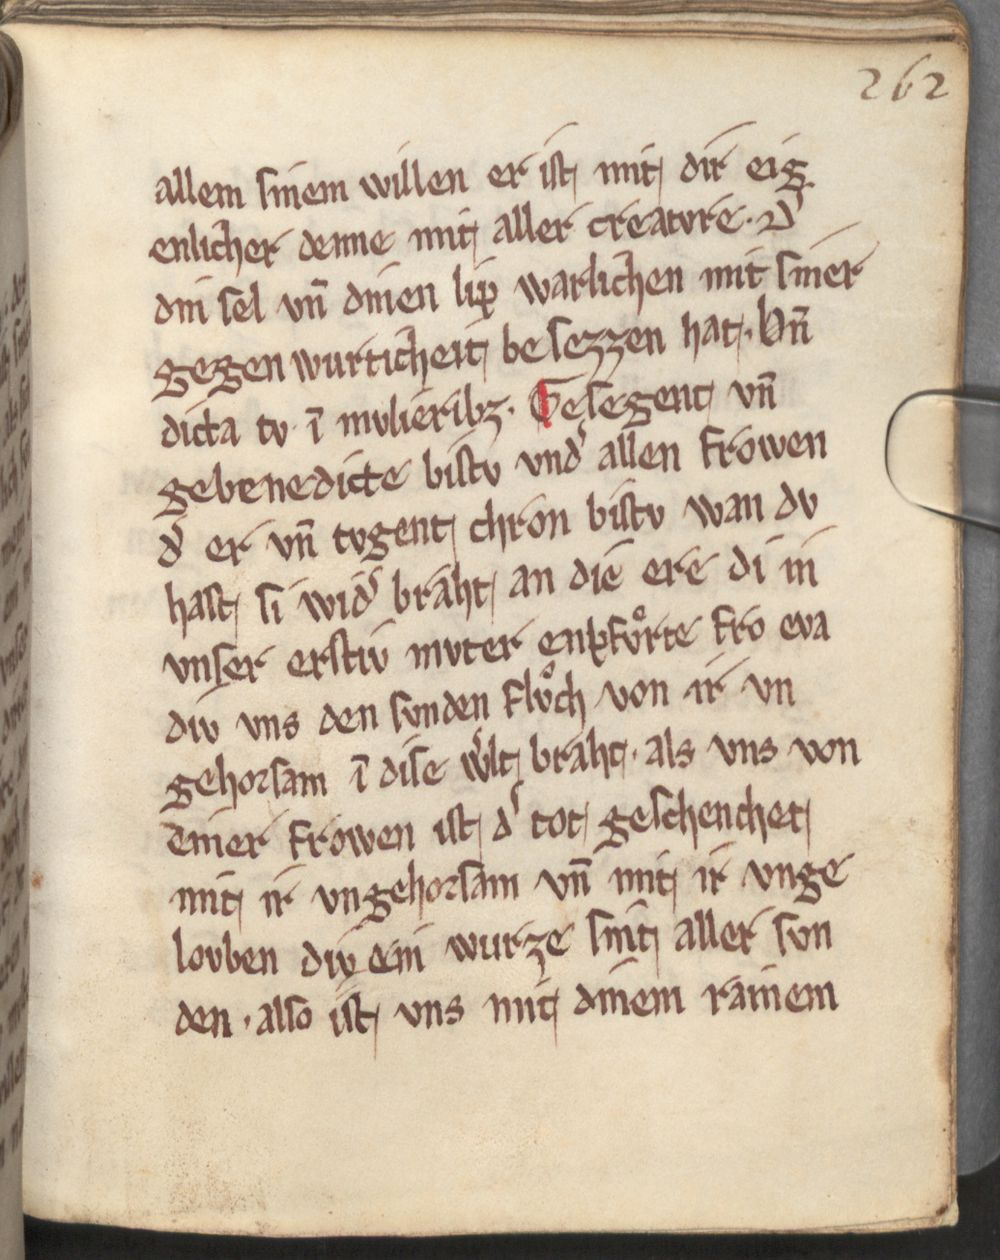 262
allem sinem willen er ist mit dir eig
enlicher denne mit aller creatvre · dˢ
din sel vn̄ dinen lip warlichen mit siner
gegen wurticheit besezzen hat · Bn̄
dicta tv · ī mvlieribꝫ · Gesegent vn̄
gebenedicte bistv vndˢ allen frowen
dˢ er vn̄ tvgent chron bistv wan dv
hast si widˢ braht an die ere di in
vnser erstiv mvter enpfvͦrte fro eva
div vns den svnden flvͦch von ir vn
gehorsam ī dise wˢlt braht · als vns von
einer frowen ist dˢ tot geschenchet
mit ir vngehorsam vn̄ mit ir vnge
lovben div ein wurze sint aller svn
den · also ist vns mit dinem rainem